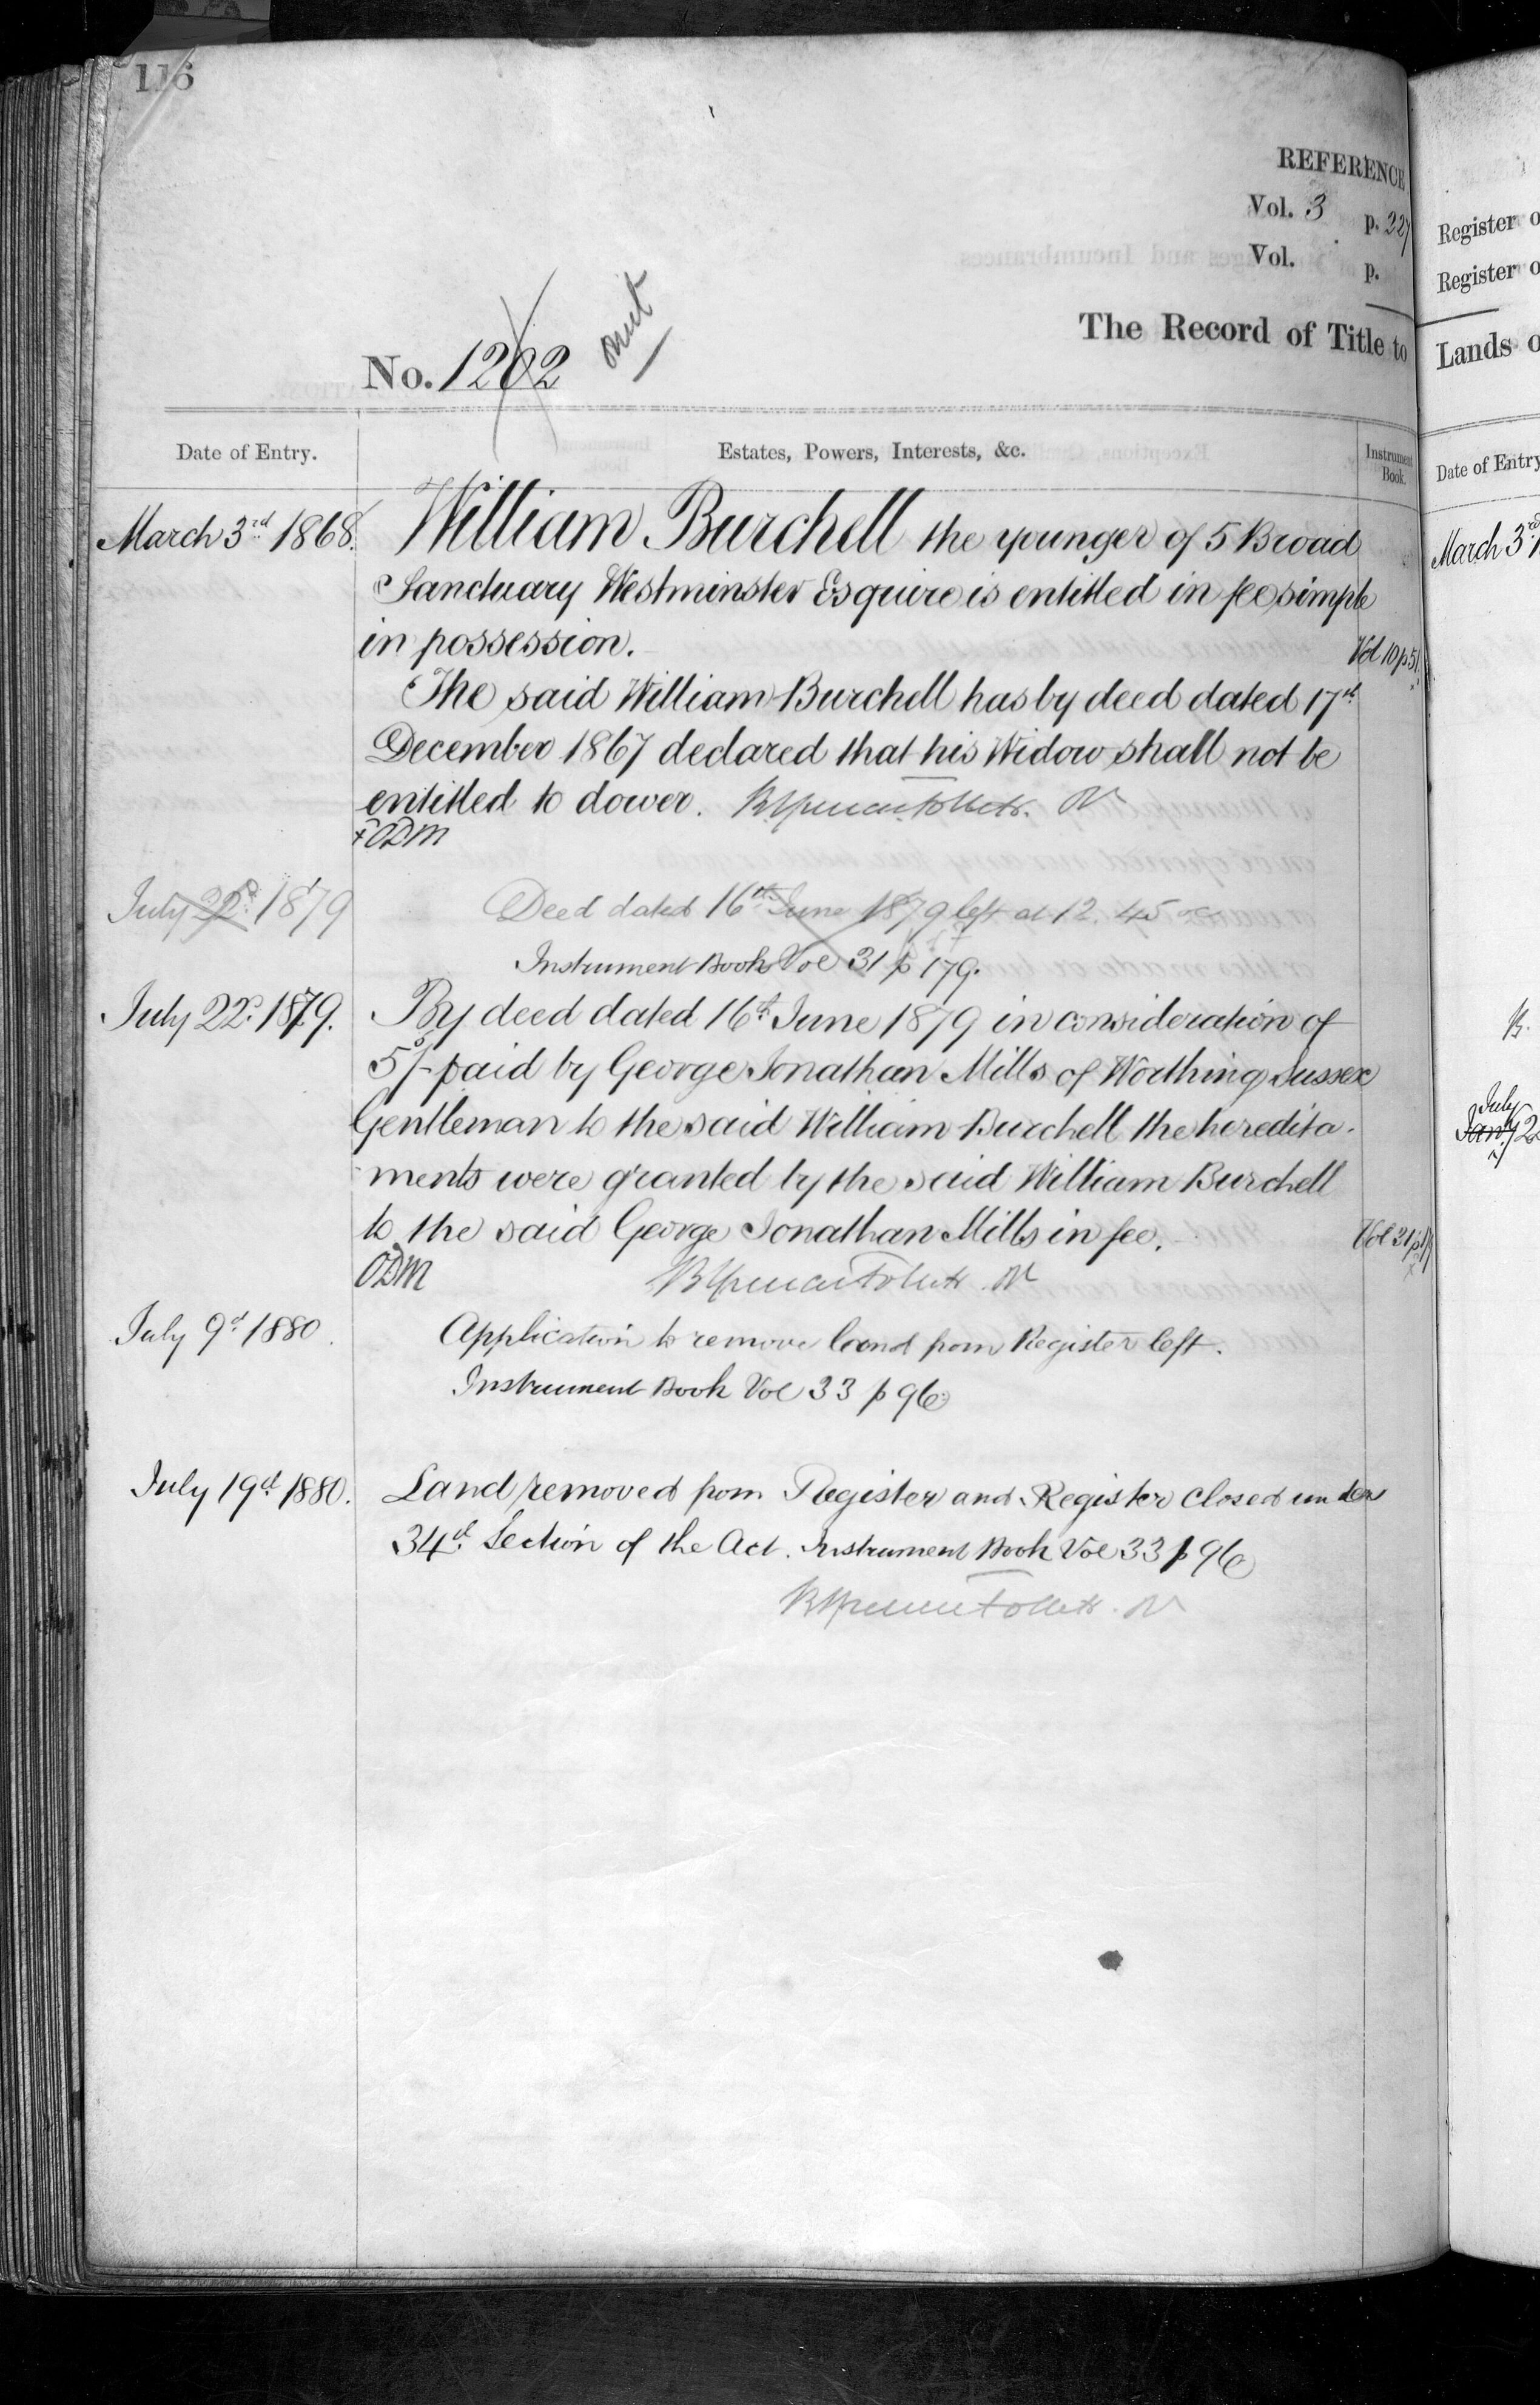 116
REFERENCE
Vol. 3 p. 227
Vol. p.
The Record of Title to
No. 1202 omit
Date of Entry. Estates, Powers, Interests, &c. Instrument Book.
March 3rd 1868. William Burchell the younger of 5 Broad
Sanctuary Westminster Esquire is entitled in fee simple
in possession. Vol 10 p 51
The said William Burchell has by deed dated 17th
December 1867 declared that his Widow shall not be
entitled to dower.
ODM
July 22d 1879 Deed dated 16th June 1879 left at 12.45
Instrument Book Vol 31 p 179.
July 22d 1879. By deed dated 16th June 1879 in consideration of
5s/- paid by George Jonathan Mills of Worthing Sussex
Gentleman to the said William Burchell the heredita-
ments were granted by the said William Burchell
to the said George Jonathan Mills in fee. Vol 31 p
ODM
July 9th 1880. Application to remove land from Register left.
Instrument Book Vol 33 p 96
July 19th 1880. Land removed from Register and Register closed under
34th Section of the Act. Instrument Book Vol 33 p 96
Register o
Register o
Lands o
Date of Entry
March 3rd 1
July
Jany 2